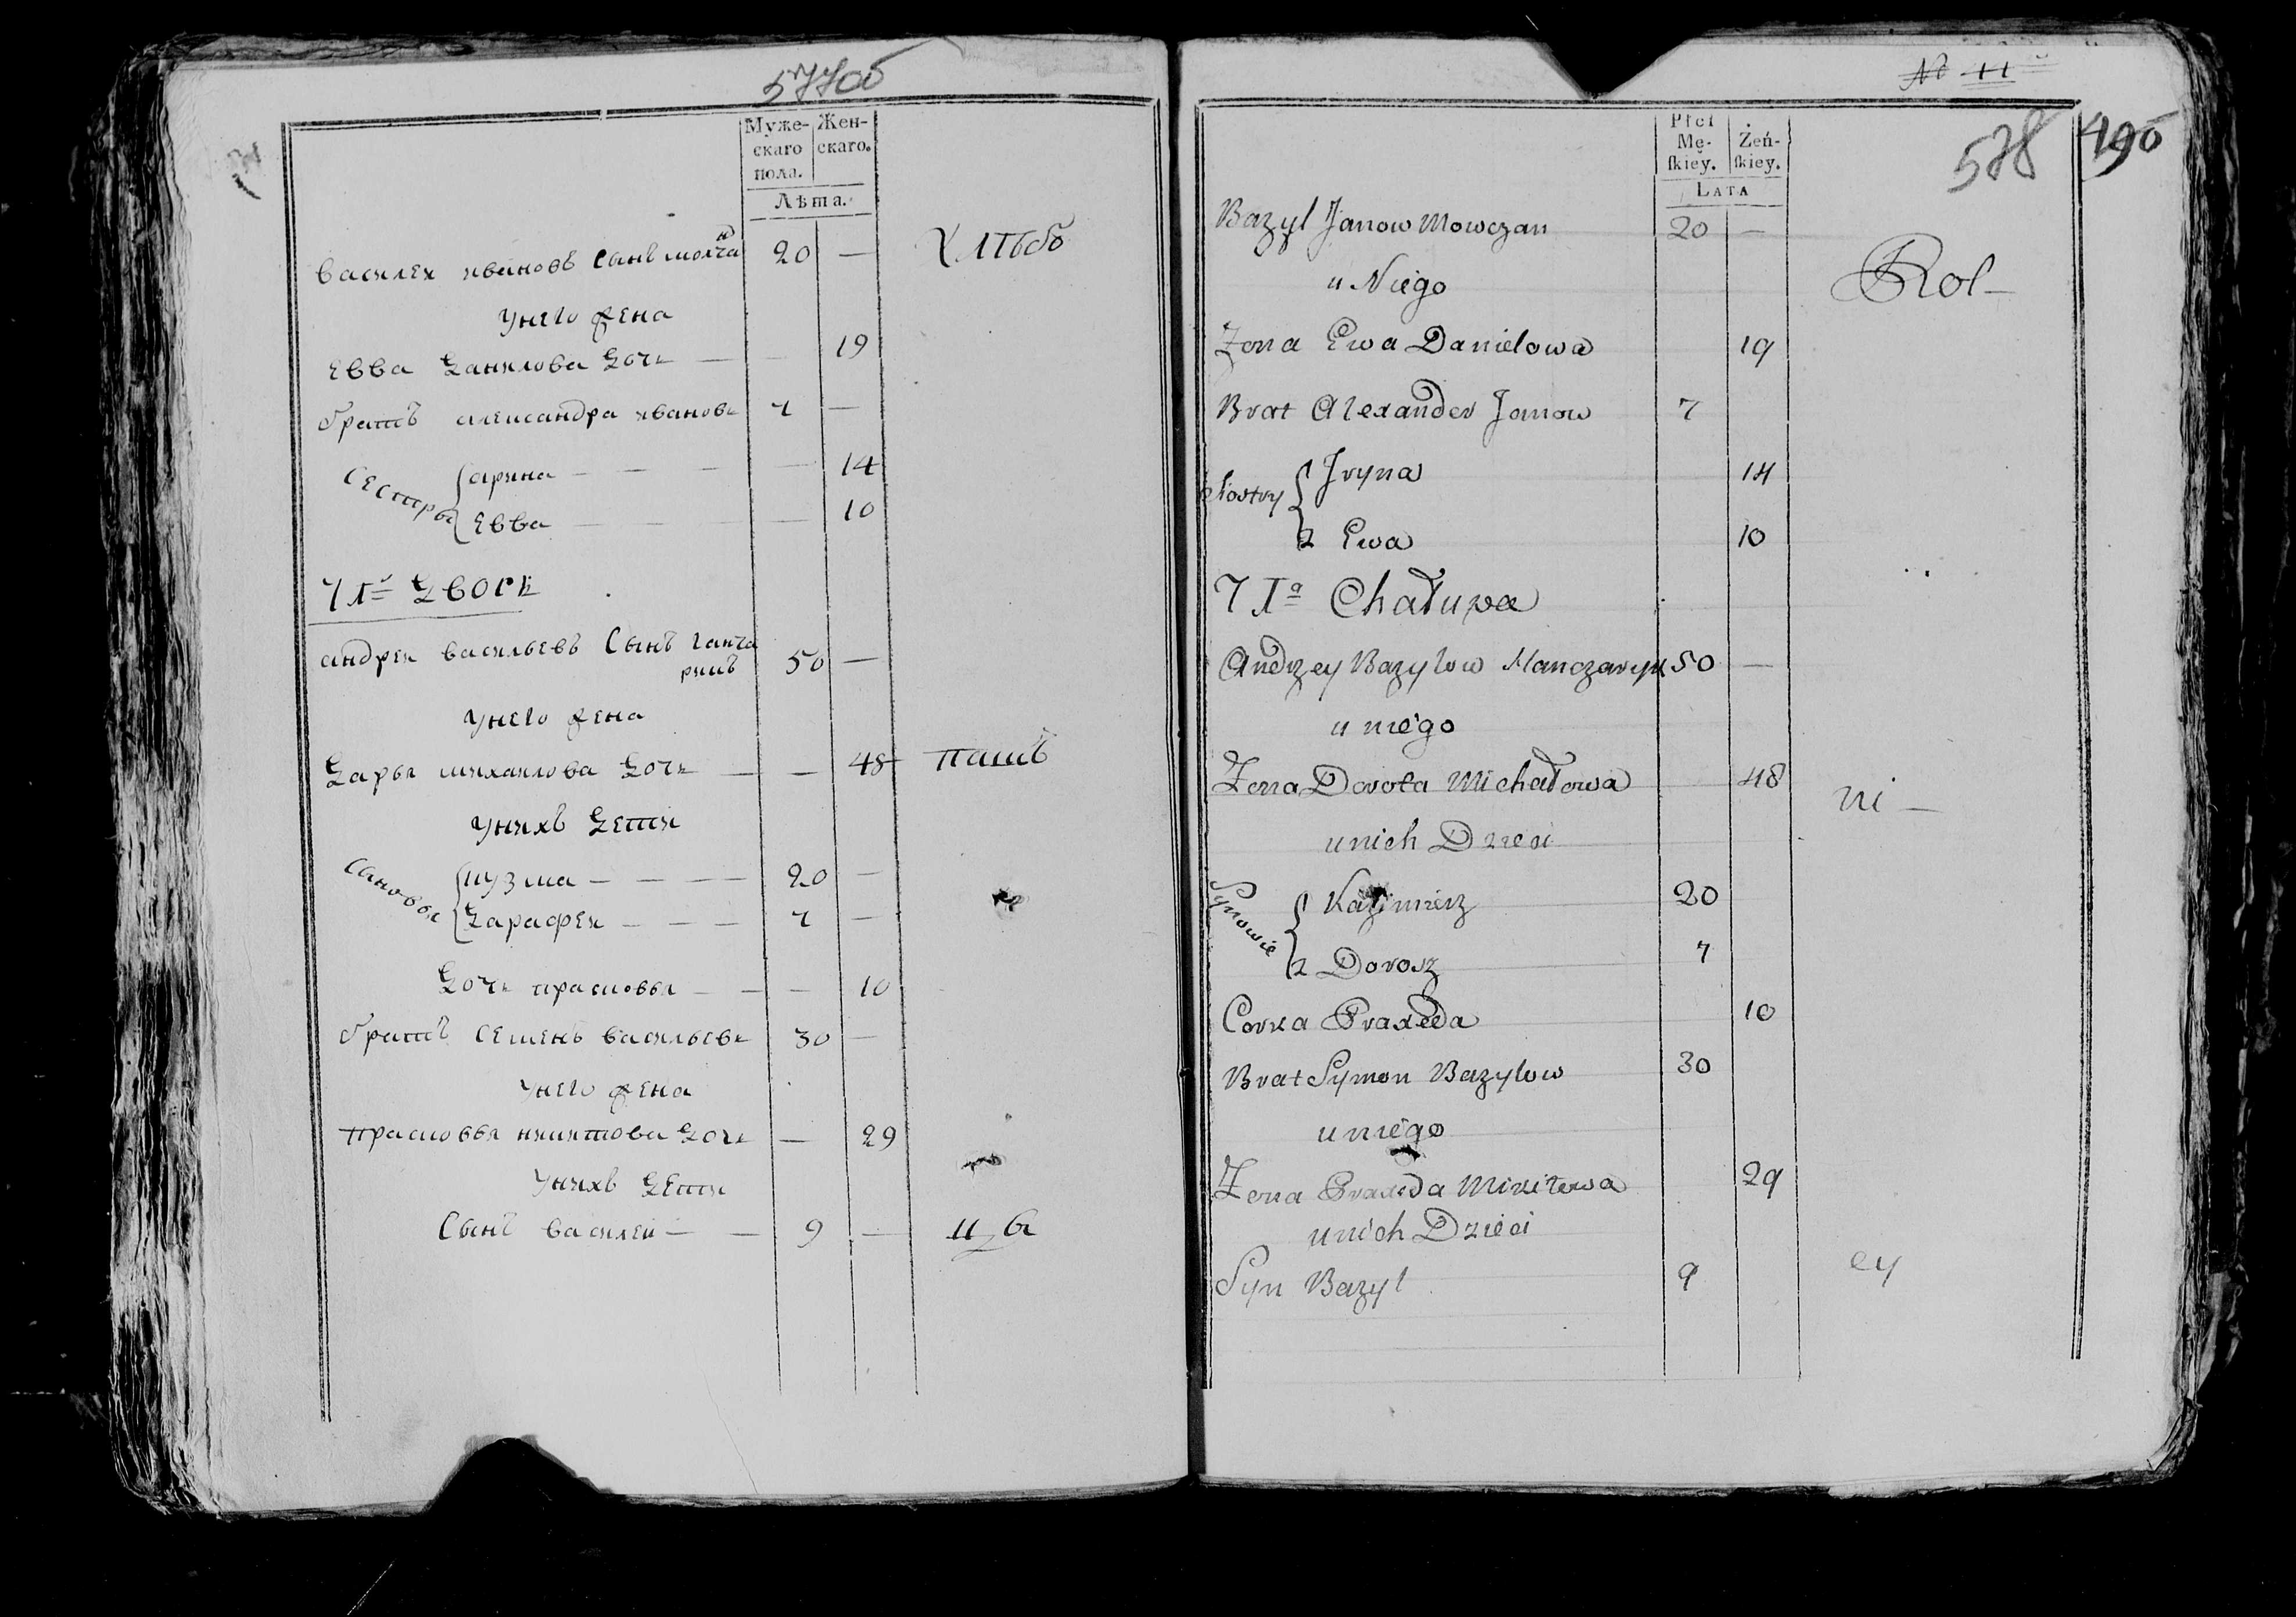 577об
Муже-
скаго
пола.
Жен-
скаго.
Лѣта.
Василеи ивановъ Сынъ молчан 20 — Хлѣбо
унего жена
Евва Данилова Дочь — — 19
братъ александра ивановъ 7 —
Сестры { арина — — — — 14
Евва — — — — 10
71й Дворъ
андреи васильевъ Сынъ ганча
рикъ 50 —
унего жена
Дарья михаилова Дочь — — 48 паш
унихъ Дети
Сановья { кузма — — — 20 —
Дарафеи — — — 7 —
Дочь прасковья — — — 10
братъ Семенъ васильевъ 30 —
унего жена
прасковья никитова Дочь — 29
унихъ Дети
Сынъ василеи — — 9 — цы
№ 11
578 490
Płci
Mę-
ſkiey.
Żeń-
ſkiey.
LATA
Bazyl Janow Mowczan 20 —
u Niego Rol-
Zona Ewa Danielowa 19
Brat Alexander Janow 7
Siostry { Jryna 14
2 Ewa 10
71a Chałupa
Andrzey Bazylow Hanczaryk 50 —
u niego
Zona Dorota Michałowa 48
ni —
unich Dzieci
Synowie { Kazimierz 20
2 Dorosz 7
Corka Praxeda 10
Brat Symon Bazylow 30
u niego
Zona Praxeda Mikitowa 29
unich Dzieci
ey
Syn Bazyl 9